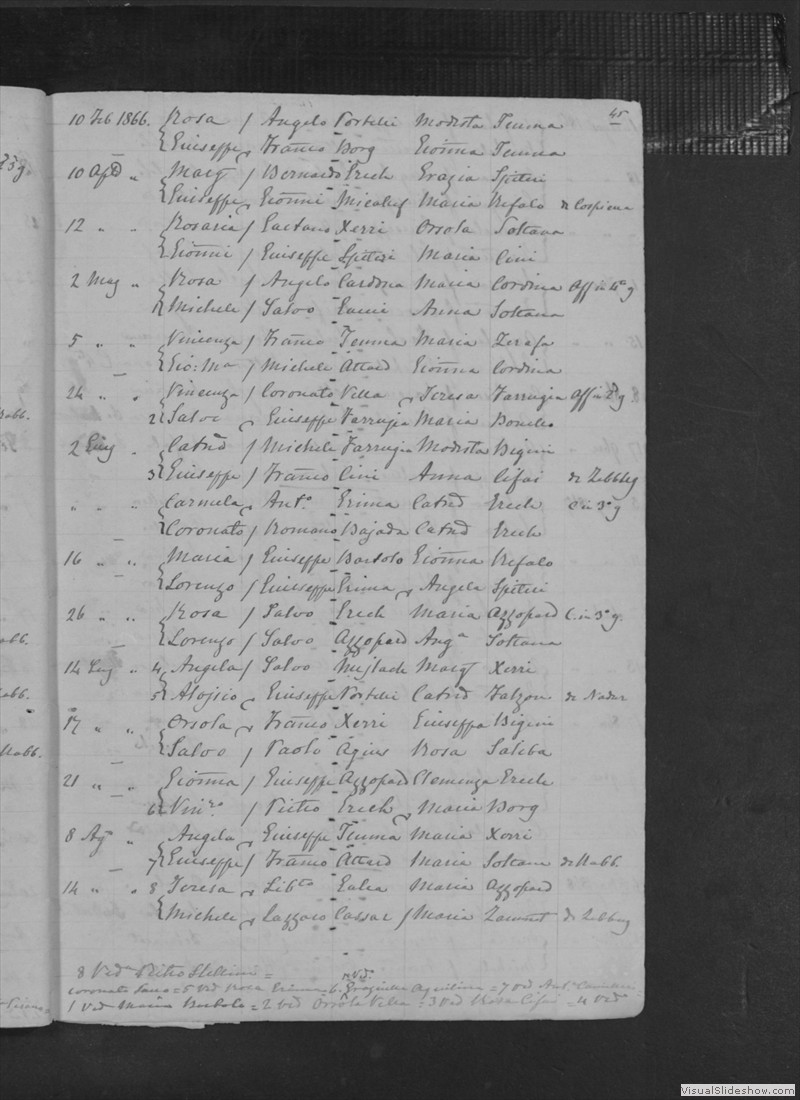 45
10 Feb 1866. Rosa / Angelo Portelli Modesta Teuma
Giuseppe Franco Borg Gionna Teuma
10 Apd " Marg / Bernardo Grech Grazia Spiteri
Giuseppe Gionni Micalef Maria Refalo di Cospicua
12 " " Rosaria / Gaetano Xerri Orsola Soltana
Gionni / Giuseppe Spiteri Maria Cini
2 Mag " Rosa / Angelo Cardona Maria Cordina Aff in 4° g
Michele / Salvo Anna Soltana
5 " " Vincenza / Franco Teuma Maria Zerafa
Gio: Ma / Michele Attard Gionna Cordina
24 " " Vincenza / Coronato Vella Teresa Farrugia Aff in 2° g.
2 Salvo Giuseppe Farrugia Maria
2 Giug " Catnd / Michele Farrugia Modesta Bigeni
3 Giuseppe / Franco Cini Anna Cefai di Zebbug
" " " Carmela Ant.° Grima Catnd Grech C in 3° g
Coronato / Romano Bajada Catnd Grech
16 " " Maria / Giuseppe Bartolo Gionna Refalo
Lorenzo / Giuseppe Grima Angela Spiteri
26 " " Rosa / Salvo Grech Maria Azzopard C. in 3° g.
Lorenzo / Salvo Azzopard Ang a Soltana
14 Lug " 4 Angela / Salvo Mejlach Marg Xerri
5 Aloisio Giuseppe Portelli Catnd Falzon di Nadur
17 " " Orsola Franco Xerri Giuseppa Bigeni
Salvo / Paolo Agius Rosa Saliba
21 " " Gionna / Giuseppe Azzopard Clemenza Grech
6 Vin.° / Pietro Grech Maria Borg
8 Ag " Angela Giuseppe Teuma Maria Xerri
7 Giuseppe / Franco Attard Maria Soltana di Rabb.
14 " " 8 Teresa Lib.to Galea Maria Azzopard
Michele Lazzaro Cassar / Maria Zammit di Zebbug
8 Ved Pietro Stellini =
coronato = 5 Ved Rosa Grima = 6. Ved. Graziulla Aquilina = 7 Ved Ant.
1 Ved Maria Bartolo = 2 Ved Orsola Vella = 3 Ved Rosa Cefai = 4 Ved
VisualSlideshow.com